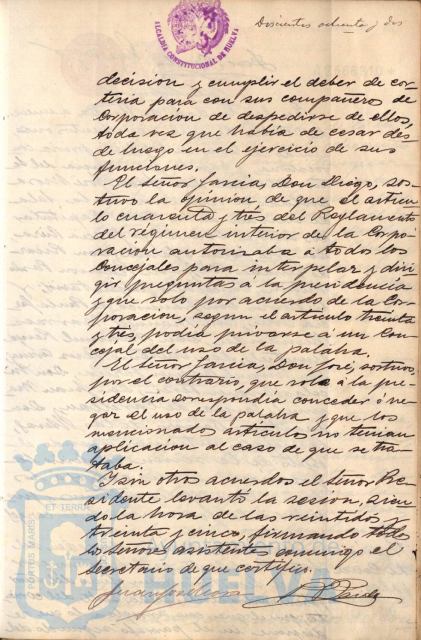 Doscientos ochenta y dos
ALCALDIA CONSTITUCIONAL DE HUELVA
decision y cumplir el deber de cor-
tesia para con sus compañeros de
Corporacion de despedirse de ellos,
toda vez que habia de cesar des-
de luego en el ejercicio de sus
funciones.
El Señor Garcia, Don Diego, sos-
tuvo la opinion de que el articu-
lo cuarenta y tres del Reglamento
del régimen interior de la Corpo-
racion autorizaba á todos los
Concejales para interpelar y diri-
gir preguntas á la presidencia
y que solo por acuerdo de la Cor-
poracion, segun el articulo treinta
y tres, podia privarse á un Con-
cejal del uso de la palabra.
El Señor Garcia, Don José, sostuvo,
por el contrario, que solo á la pre-
sidencia correspondia conceder ó ne-
gar el uso de la palabra y que los
mencionados articulos no tenian
aplicacion al caso de que se tra-
taba.
Y sin otros acuerdos el Señor Pre-
sidente levantó la sesion, sien-
do la hora de las veintidos y
treinta y cinco, firmando todos
los Señores asistentes conmigo el
Secretario de que certifico.
PORTUS MARIS ET TERRÆ
HUELVA